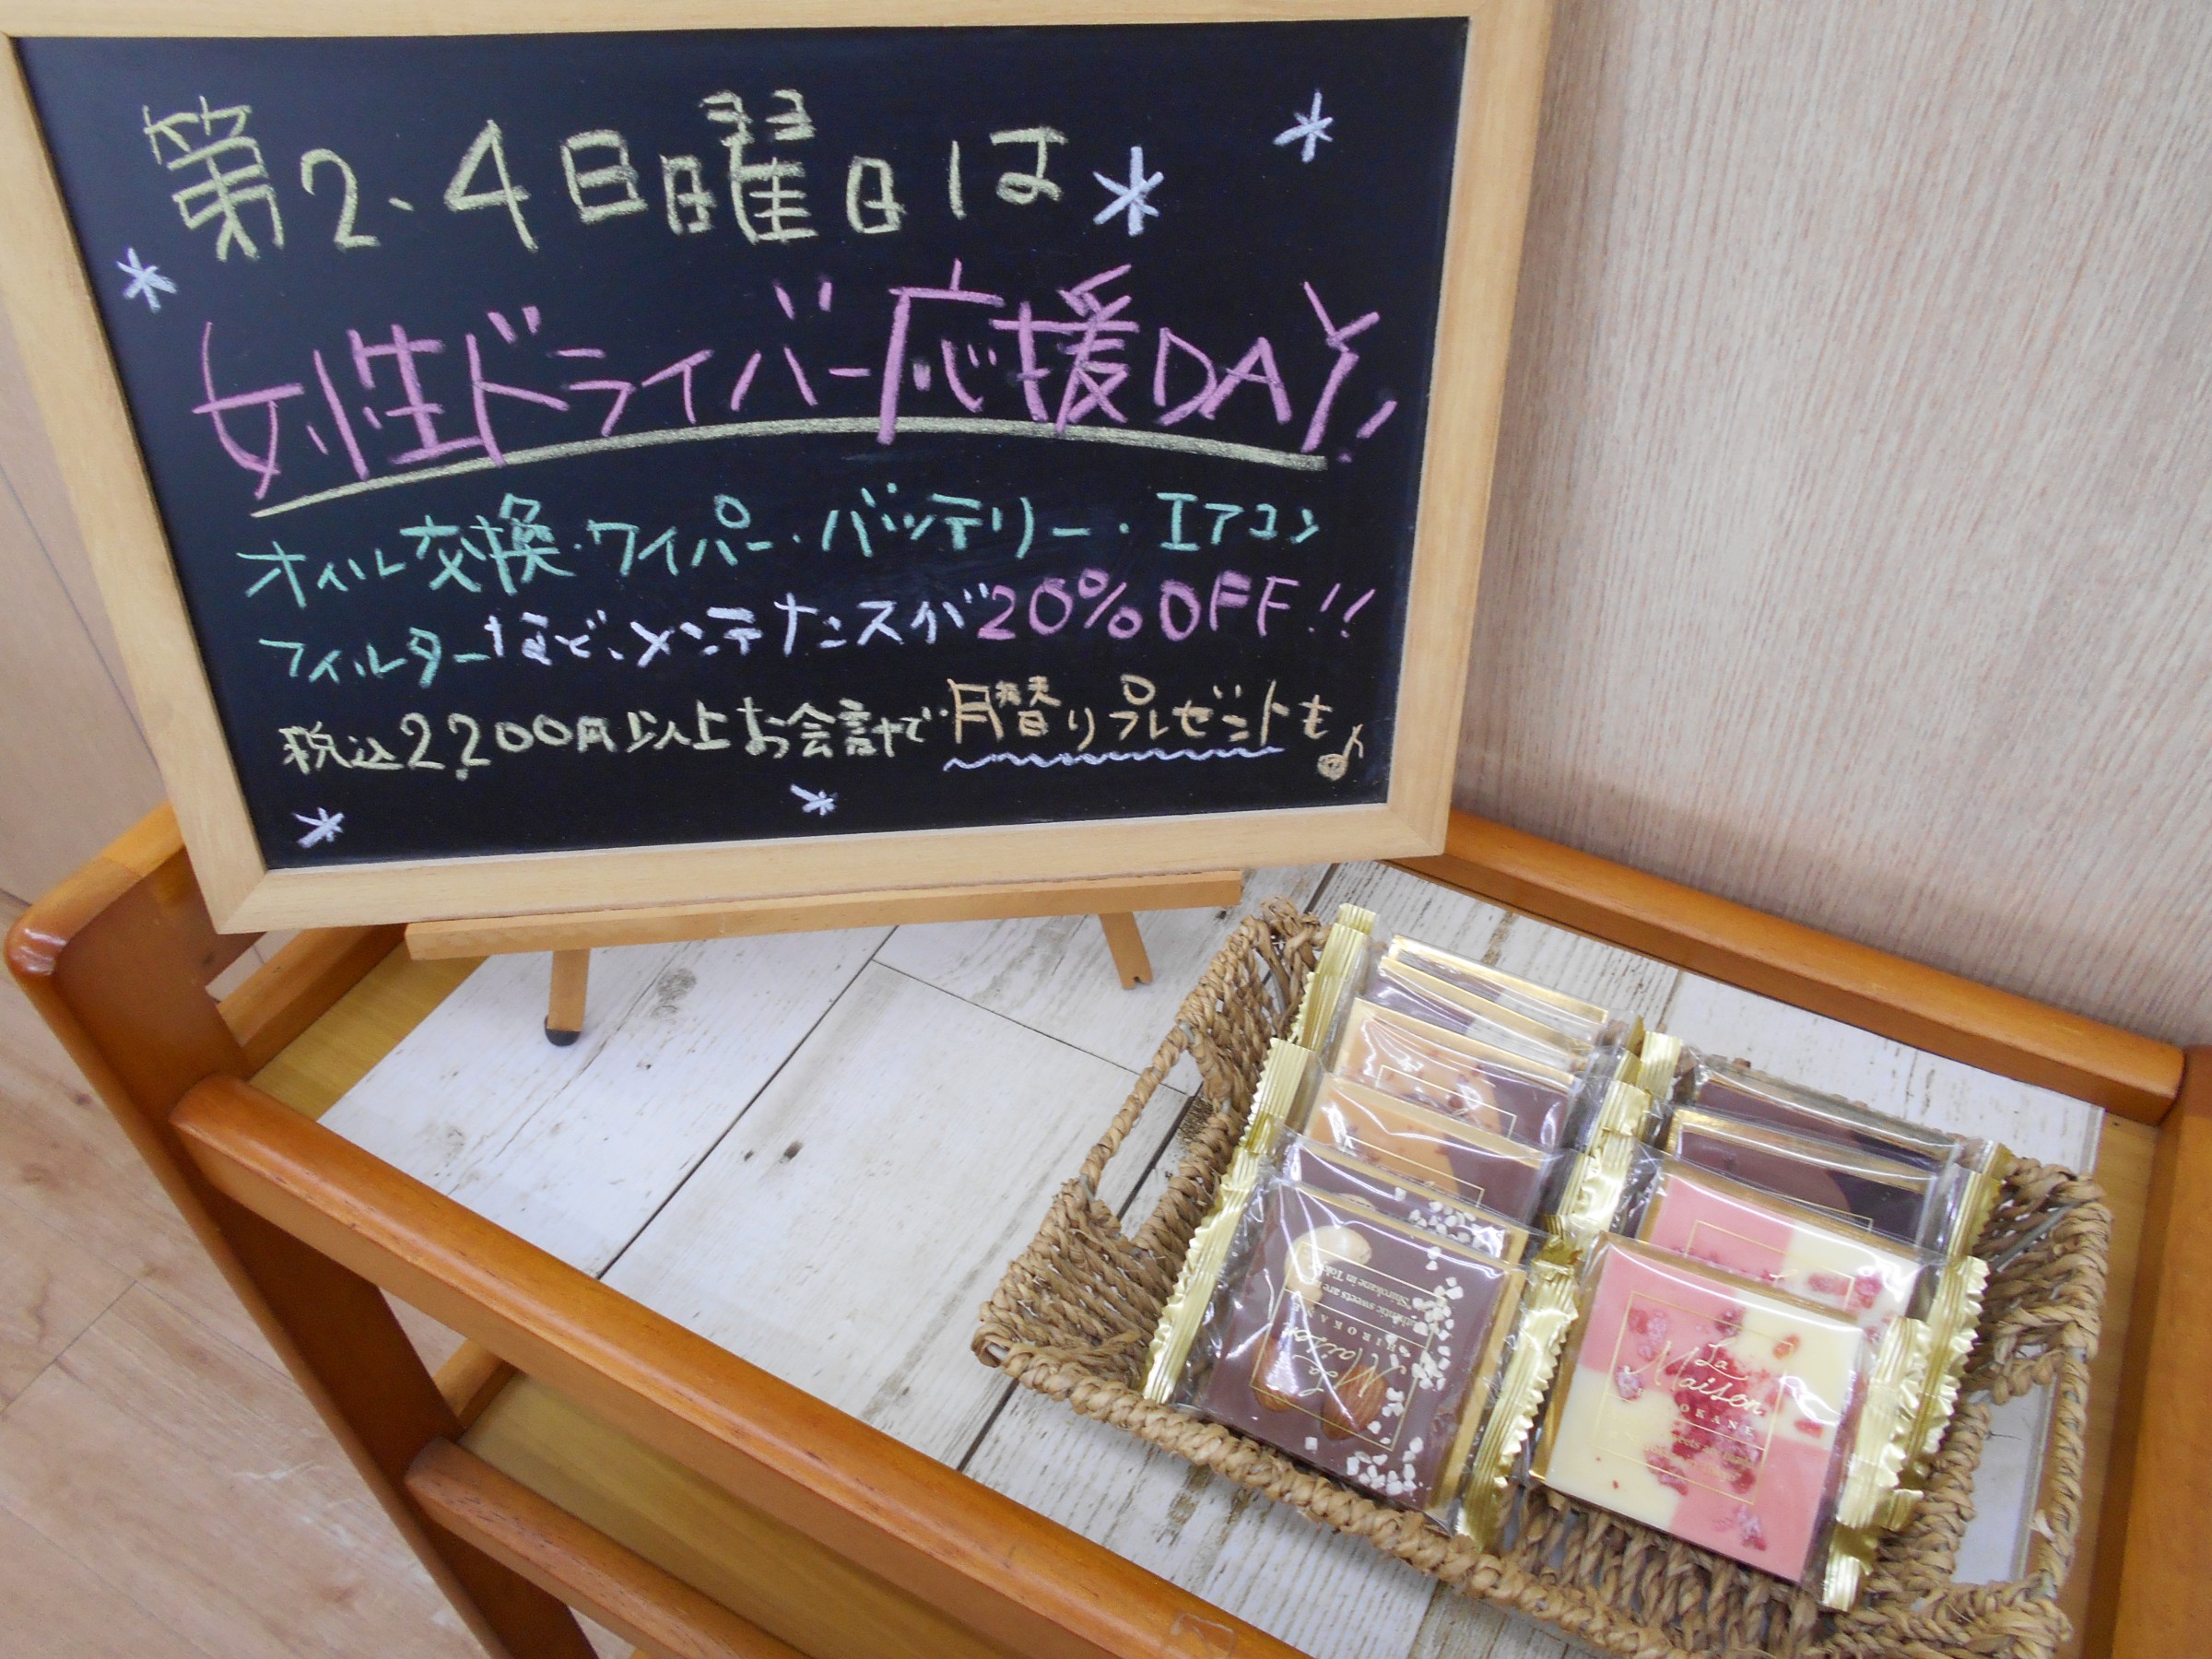 第2、4日曜日は
女性ドライバー応援DAY!
オイル交換・ワイパー・バッテリー・エアコン
フィルターなど、メンテナンスが20%OFF!!
税込2,200円以上お会計で月替りプレゼントも♪
La
Maison
SHIROKANE
sweets are
"Shirokane in Tok
La
Maison
OKANE